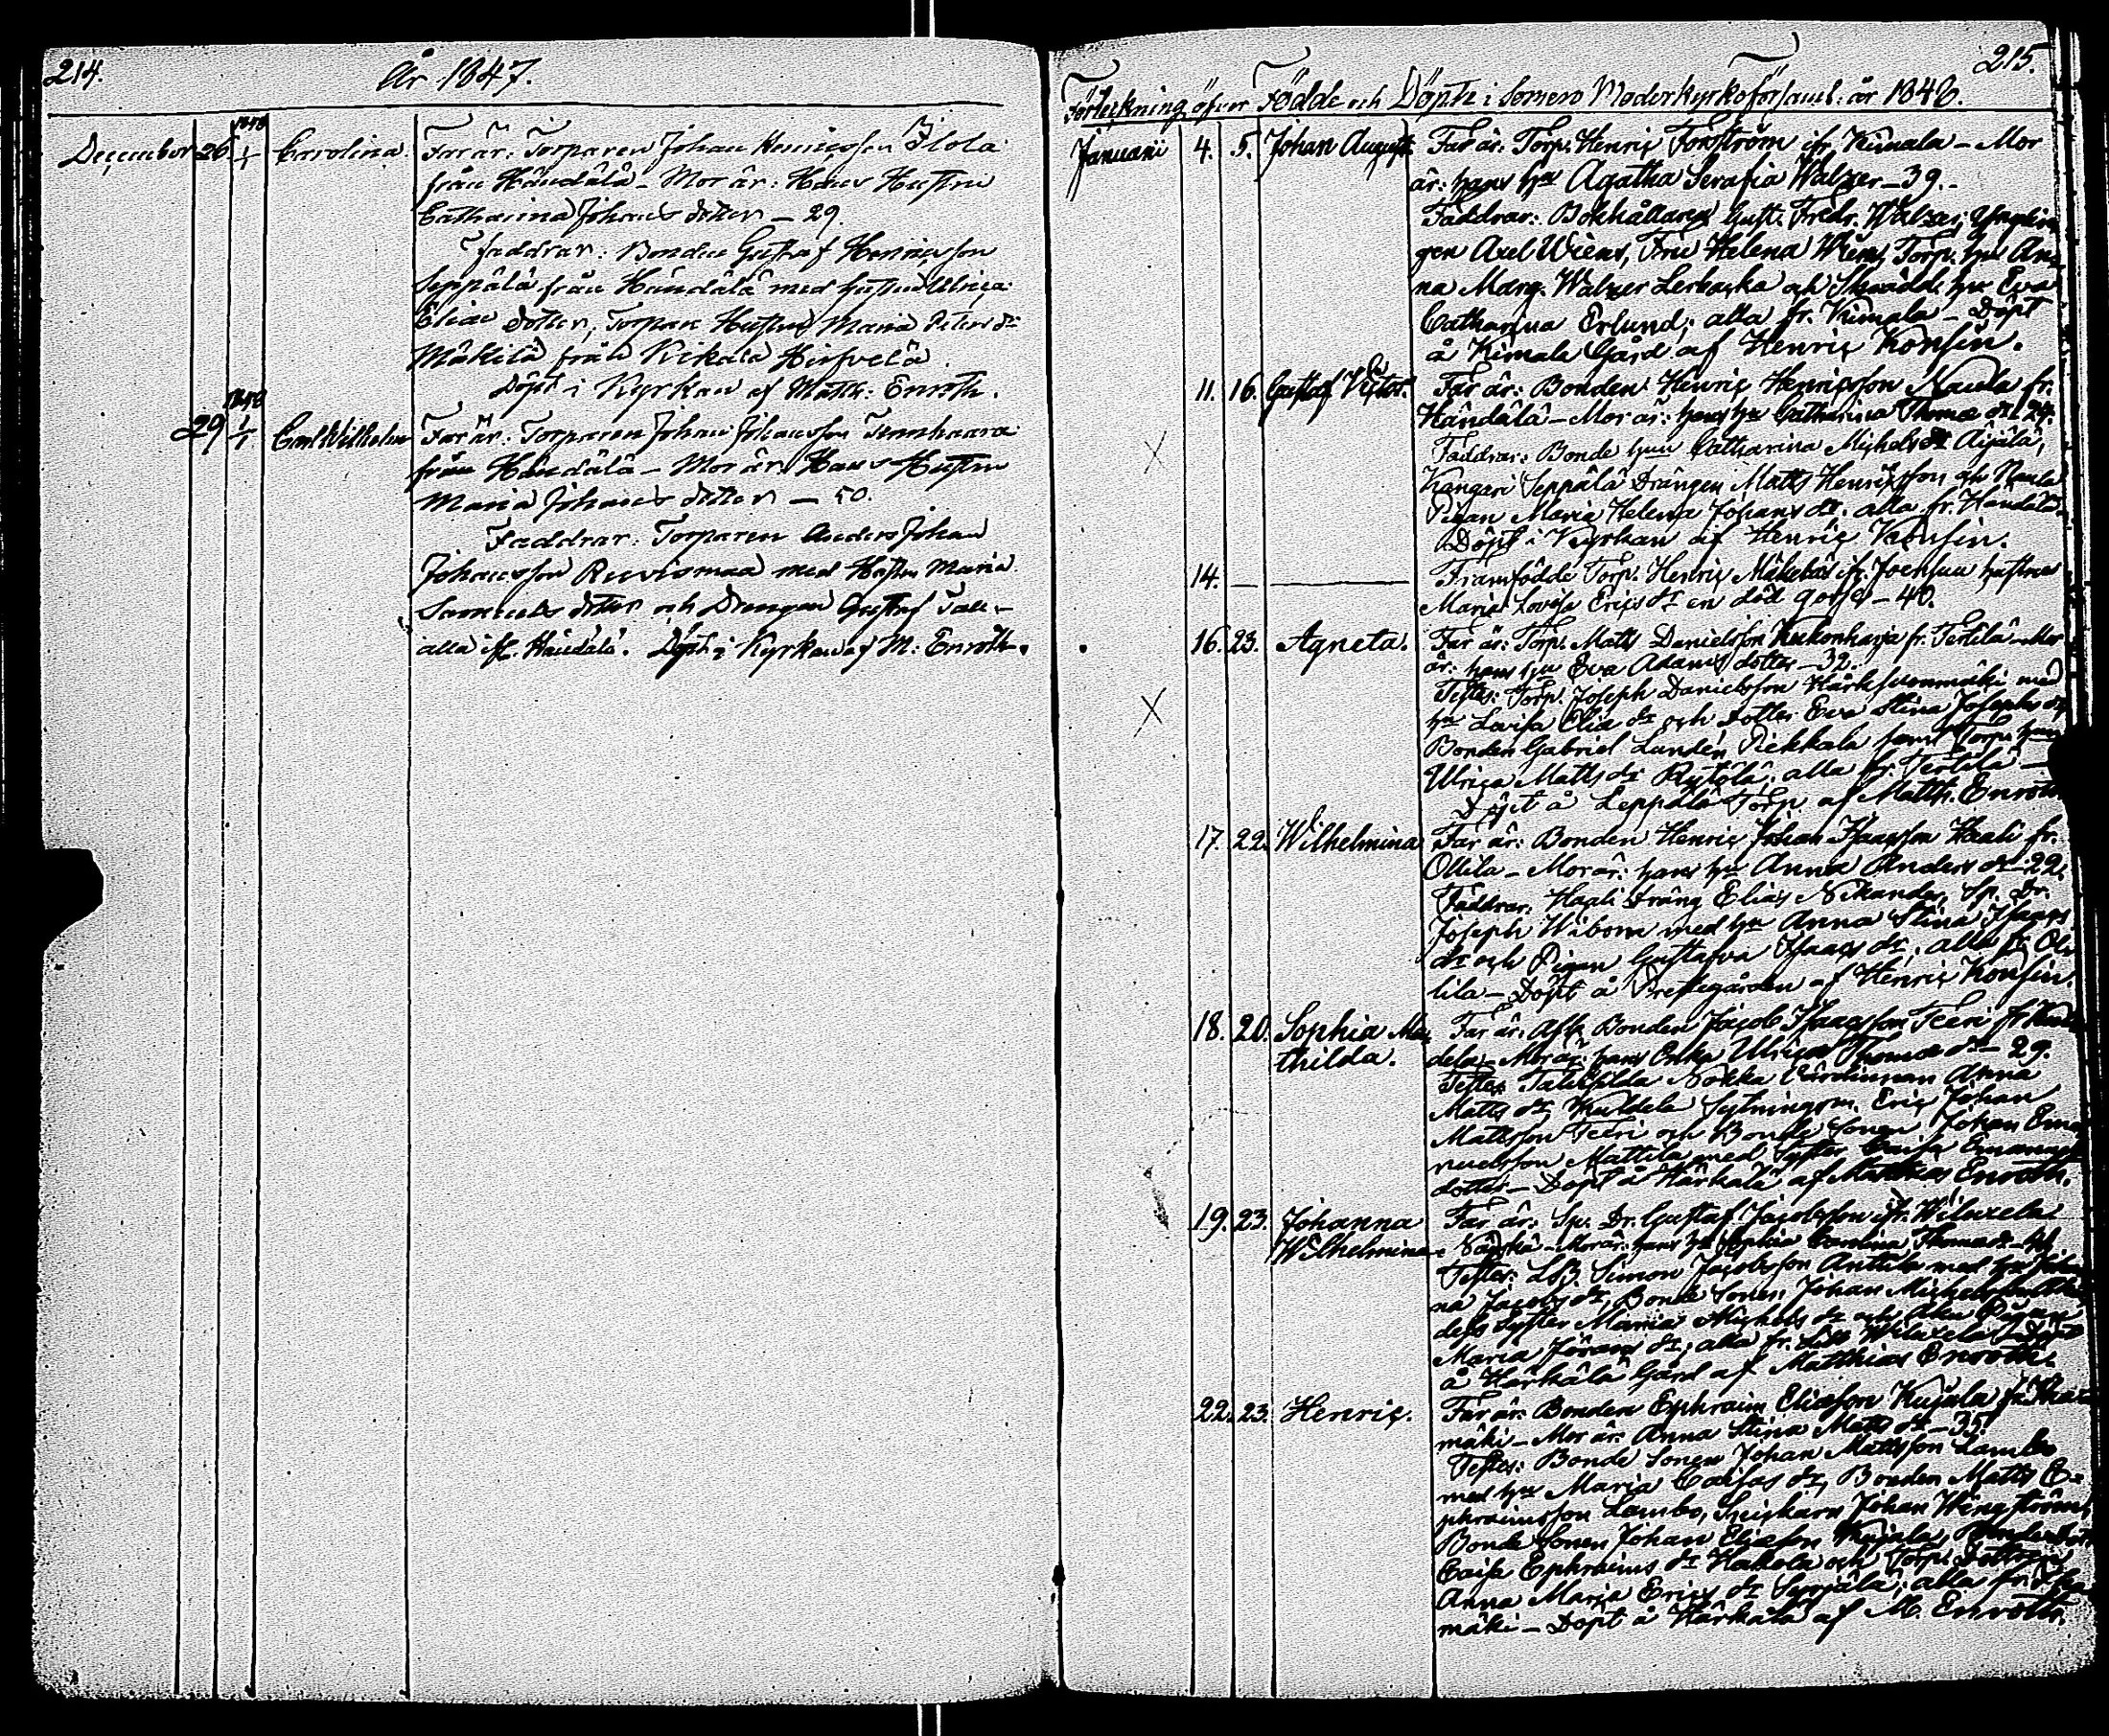 214. År 1847.
December 26 1848 1/1 Carolina. Far är: Torparen Johan Henricsson Ilola
från Händälä – Mor är: Hans Hustru
Catharina Johans dotter – 29.
Faddrar: Bonden Gustaf Henricsson
Seppälä från Händälä med hustru Ulrica
Eliae dotter, Torpare Hustrun Maria Petersdr
Mäkilä från Kirkala Hirsvelä.
Döpt i Kyrkan af Matth: Enroth.
29 1848 1/1 Carl Wilhelm Far är: Torparen Johan Johansson
från Händälä – Mor är Hans Hustru
Maria Johans dotter – 50.
Faddrar: Torparen Anders Johan
Johansson Ruismaa med Hustru Maria
Samuels dotter och Drengen Gustaf
alla ifr. Händälä. Döpt i Kyrkan af M: Enroth.
215.
Förteckning öfver Födde och Döpte i Somero Moderkyrkoförsaml: år 1848.
Januari 4. 5. Johan August. Far är: Torp. Henric Forsström ifr. Kimala – Mor
är: hans hu Agatha Serafia Walzer – 39. –
Faddrar: Bokhållaren Gust. Fredr. Walzer, Ynglin
gen Axel Wiens, Fru Helena Wiens, Torp. hu An
na Marg. Walzer Lerbacka och Skrädd. hu Eva
Catharina Erlund; alla fr. Kimala – Döpt
å Kimala Gård af Henric Konsin.
11. 16. Gustaf Victor. Far är: Bonden Henric Henricsson Naula fr.
Händälä – Mor är: hans hu Catharina Thomæ dr. 24.
Faddrar: Bonde hun Catharina Michels dr Äijälä,
Kangari Seppälä Drängen Matts Henricsson och Naula
Pigan Maria Helena Johans dr. alla fr. Händälä.
Döpt i Kyrkan af Henric Konsin.
14. — — Framfödde Torp. Henric Mäkeläs ifr. Joensuu hustru
Maria Lovisa Erics dr en död gosse – 40.
16. 23. Agneta. Far är: Torp. Matts Danielsson Keckonharja fr. Terttilä – Mor
är: hans hu Eva Adams dotter – 32.
Testes: Torp. Joseph Danielsson Härksuonmäki med
hu Lovisa Eliæ dr och dotter Eva Stina Josephs dr
Bonden Gabriel Lundén Pickkala samt Torp. hun
Ulrica Matts dr Rytölä, alla fr. Terttilä –
Döpt å Leppälä Torp af Matth. Enroth
17. 22. Wilhelmina Far är: Bonden Henric Johan Isaacsson Haali fr.
Ollila – Mor är: hans hu Anna Anders dr – 22.
Faddrar: Haali dräng Elias Nikander, Sp. Dr.
Joseph Wibom med hu Anna Stina Isaacs
dr och Pigan Gustafva Isaacs dr, alla fr. Ol
lila – Döpt å Prestegården af Henric Konsin.
18. 20. Sophia Ma Far är: Afl. Bonden Jacob Isaacsson Teeri fr.
thilda. dela – Mor är: hans Enka Ulrica Thomæ dr – 29.
Testes: Nokka Värdinnan Anna
Matts dr, Kuldela Sytningsm. Eric Johan
Mattsson Teeri och Bonde Sonen Johan Ema
nuelsson Mattila med Syster Caisa Emanuels
dotter – Döpt å Härkälä af Matthias Enroth.
19. 23. Johanna Far är: Sp. Dr. Gustaf Jacobsson ifr. Wiluxela
Wilhelmina – Mor är: hans hu Sophia Carolina Thomæ dr – 41
Testes: LB. Simon Jacobsson Anttila med hu
na Jacobs dr, Bonde Sonen Johan Michelsson
dess Syster Maria Michels dr och Pigan
Maria Görans dr, alla fr. Wiluxela Döpt
å Härkälä Gård af Matthias Enroth.
22. 23. Henric. Far är: Bonden Ephraim Eliæson Kujala fr.
mäki – Mor är: Anna Stina Matts dr – 35.
Testes: Bonde Sonen Johan Mattsson Lambo
med hu Maria Caisas dr, Bonden Matts E-
phraimsson Lambo, Johan Wingström,
Bonde Sonen Johan Eliæson Kujala,
Caisa Ephraims dr Hakola och Torp. Dottern
Anna Maria Erics dr Syrjälä; alla fr.
mäki – Döpt å Härkälä af M. Enroth.